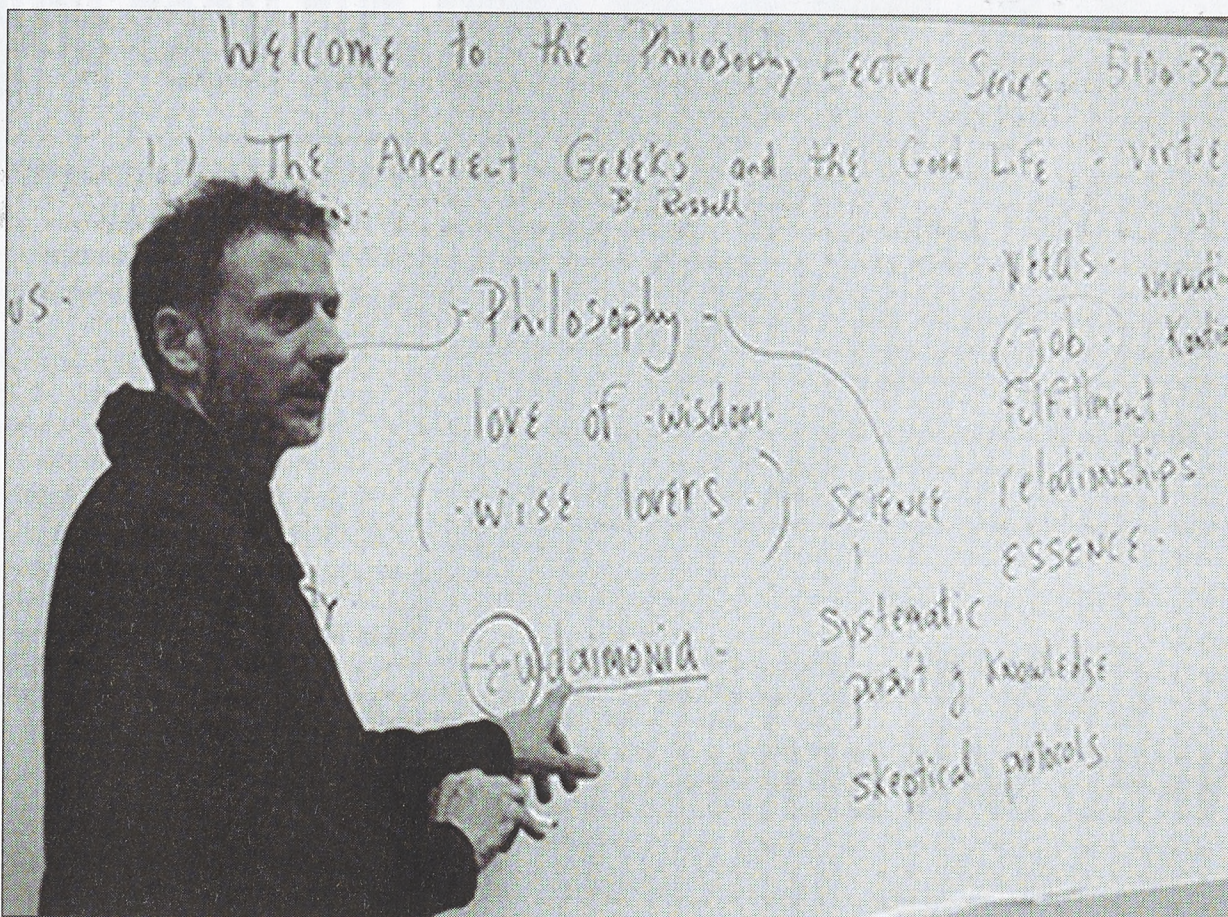 Welcome to the Philosophy Lecture Series.
1.) The Ancient Greeks and the Good Life - virtue
B. Russell
us.
- Philosophy -
love of wisdom.
( wise lovers . )
ty
- Eudaimonia -
Science
systematic
pursuit of knowledge
skeptical protocols
. needs .
. Job .
fulfillment
relationships
essence .